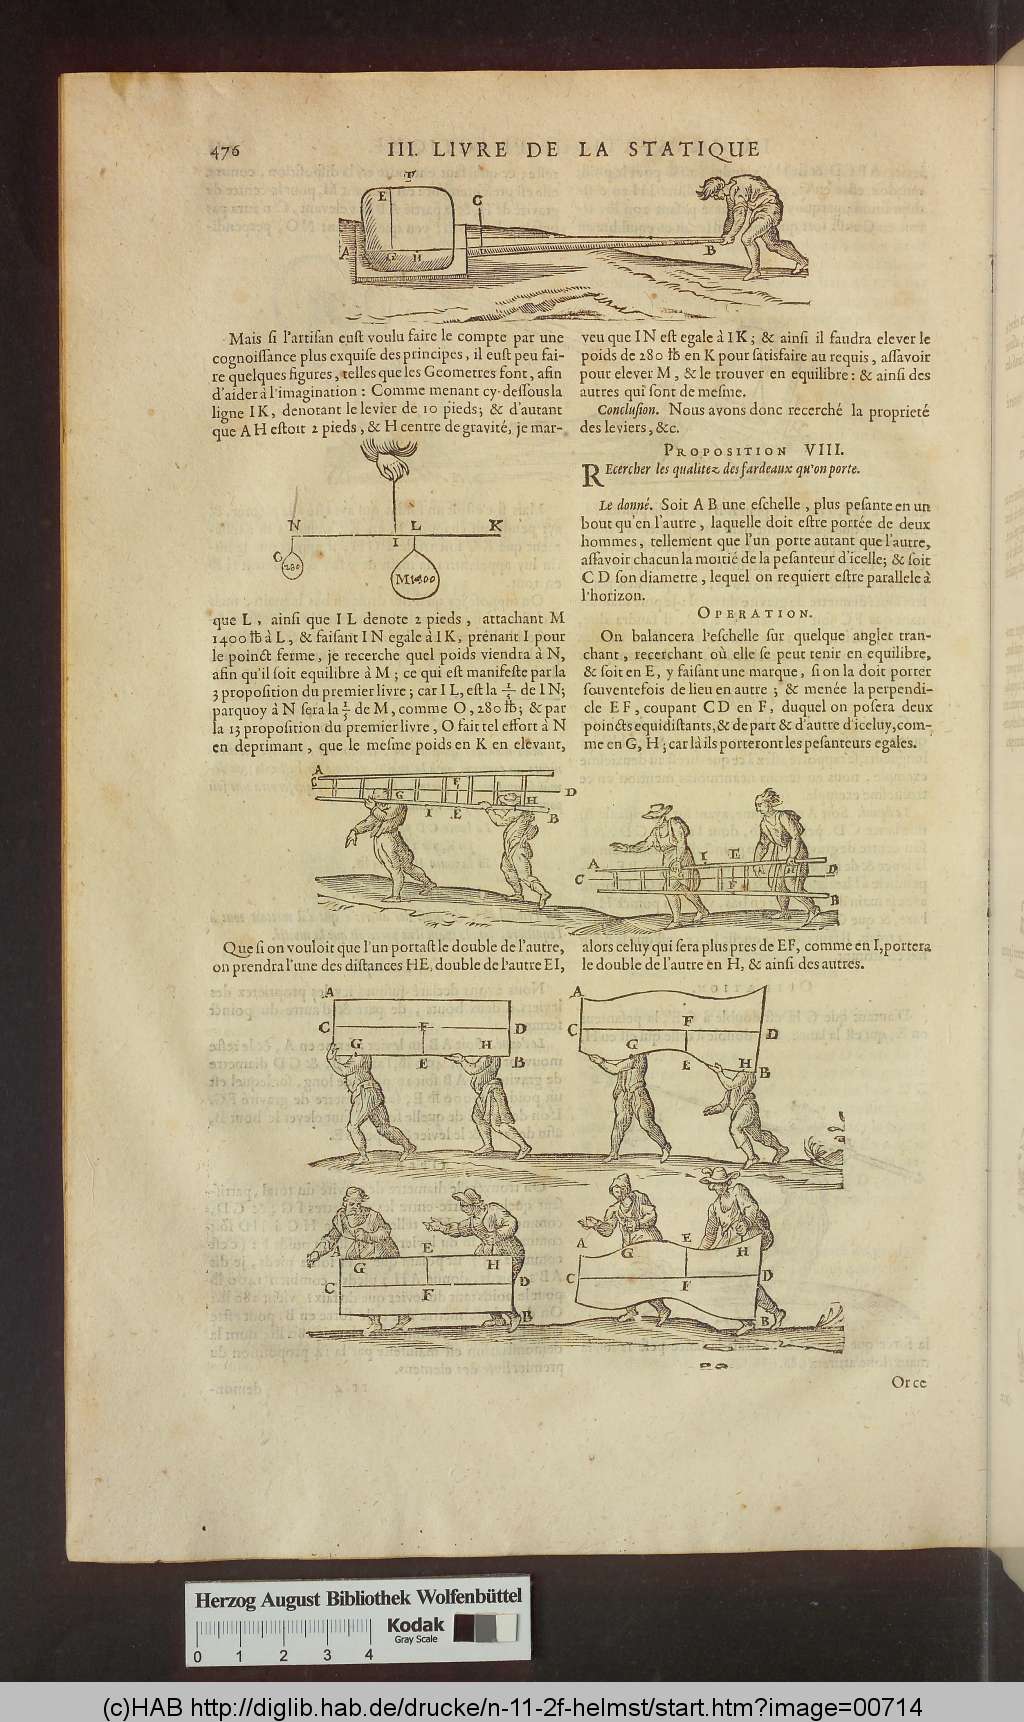 476
III. LIVRE DE LA STATIQUE
E F C
A G H B
Mais ſi l'artiſan euſt voulu faire le compte par une
cognoiſſance plus exquiſe des principes, il euſt peu fai-
re quelques figures, telles que les Geometres font, afin
d'aider à l'imagination : Comme menant cy-deſſous la
ligne I K, denotant le levier de 10 pieds; & d'autant
que A H eſtoit 2 pieds, & H centre de gravité, je mar-
N L K
I
O
280
M1400
que L, ainſi que I L denote 2 pieds, attachant M
1400 ℔ à L, & faiſant I N egale à I K, prenant I pour
le poinct ferme, je recerche quel poids viendra à N,
afin qu'il ſoit equilibre à M; ce qui eſt manifeſte par la
3 propoſition du premier livre; car I L, eſt la 1/5 de I N;
parquoy à N ſera la 1/5 de M, comme O, 280 ℔; & par
la 13 propoſition du premier livre, O fait tel effort à N
en deprimant, que le meſme poids en K en elevant,
veu que I N eſt egale à I K; & ainſi il faudra elever le
poids de 280 ℔ en K pour ſatisfaire au requis, aſſavoir
pour elever M, & le trouver en equilibre: & ainſi des
autres qui ſont de meſme.
Concluſion. Nous avons donc recerché la proprieté
des leviers, &c.
PROPOSITION VIII.
REcercher les qualitez des fardeaux qu'on porte.
Le donné. Soit A B une eſchelle, plus peſante en un
bout qu'en l'autre, laquelle doit eſtre portée de deux
hommes, tellement que l'un porte autant que l'autre,
aſſavoir chacun la moitié de la peſanteur d'icelle; & ſoit
C D ſon diametre, lequel on requiert eſtre parallele à
l'horizon.
OPERATION.
On balancera l'eſchelle ſur quelque anglet tran-
chant, recerchant où elle ſe peut tenir en equilibre,
& ſoit en E, y faiſant une marque, ſi on la doit porter
ſouventefois de lieu en autre; & menée la perpendi-
cle E F, coupant C D en F, duquel on poſera deux
poincts equidiſtants, & de part & d'autre d'iceluy, com-
me en G, H; car là ils porteront les peſanteurs egales.
A
C G F H D
I E B
A I E D
C G F H
B
Que ſi on vouloit que l'un portaſt le double de l'autre,
on prendra l'une des diſtances HE, double de l'autre EI,
alors celuy qui ſera plus pres de EF, comme en I, portera
le double de l'autre en H, & ainſi des autres.
A
C F D
G H
E B
A
C F D
G
E H B
A E
G H
C F D
B
A E
G H
C F D
B
Or ce
Herzog August Bibliothek Wolfenbüttel
Kodak
Gray Scale
0 1 2 3 4
(c)HAB http://diglib.hab.de/drucke/n-11-2f-helmst/start.htm?image=00714